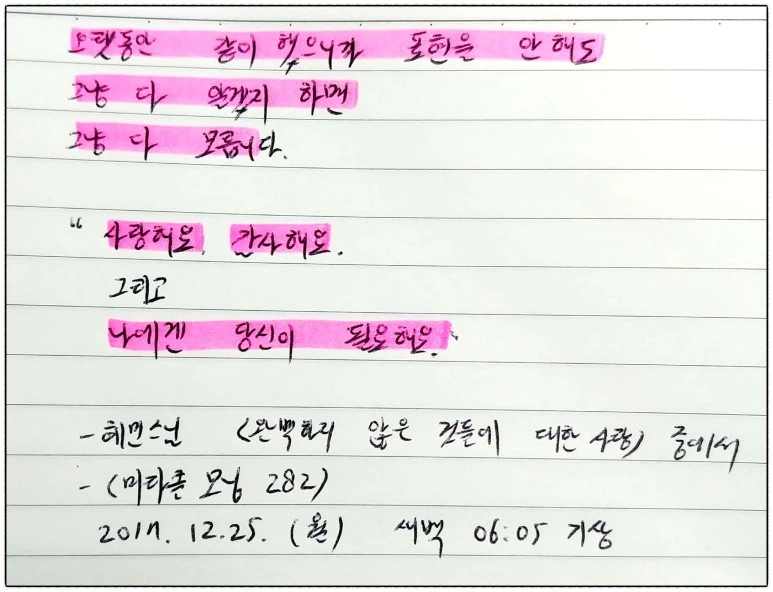 오랫동안 같이 했으니까 표현을 안 해도
그냥 다 알겠지 하면
그냥 다 모릅니다.
“사랑해요. 감사해요.
그리고
나에겐 당신이 필요해요.”
- 혜민스님 <완벽하지 않은 것들에 대한 사랑> 중에서
- (미라클 모닝 282)
2017. 12. 25. (월) 새벽 06:05 기상